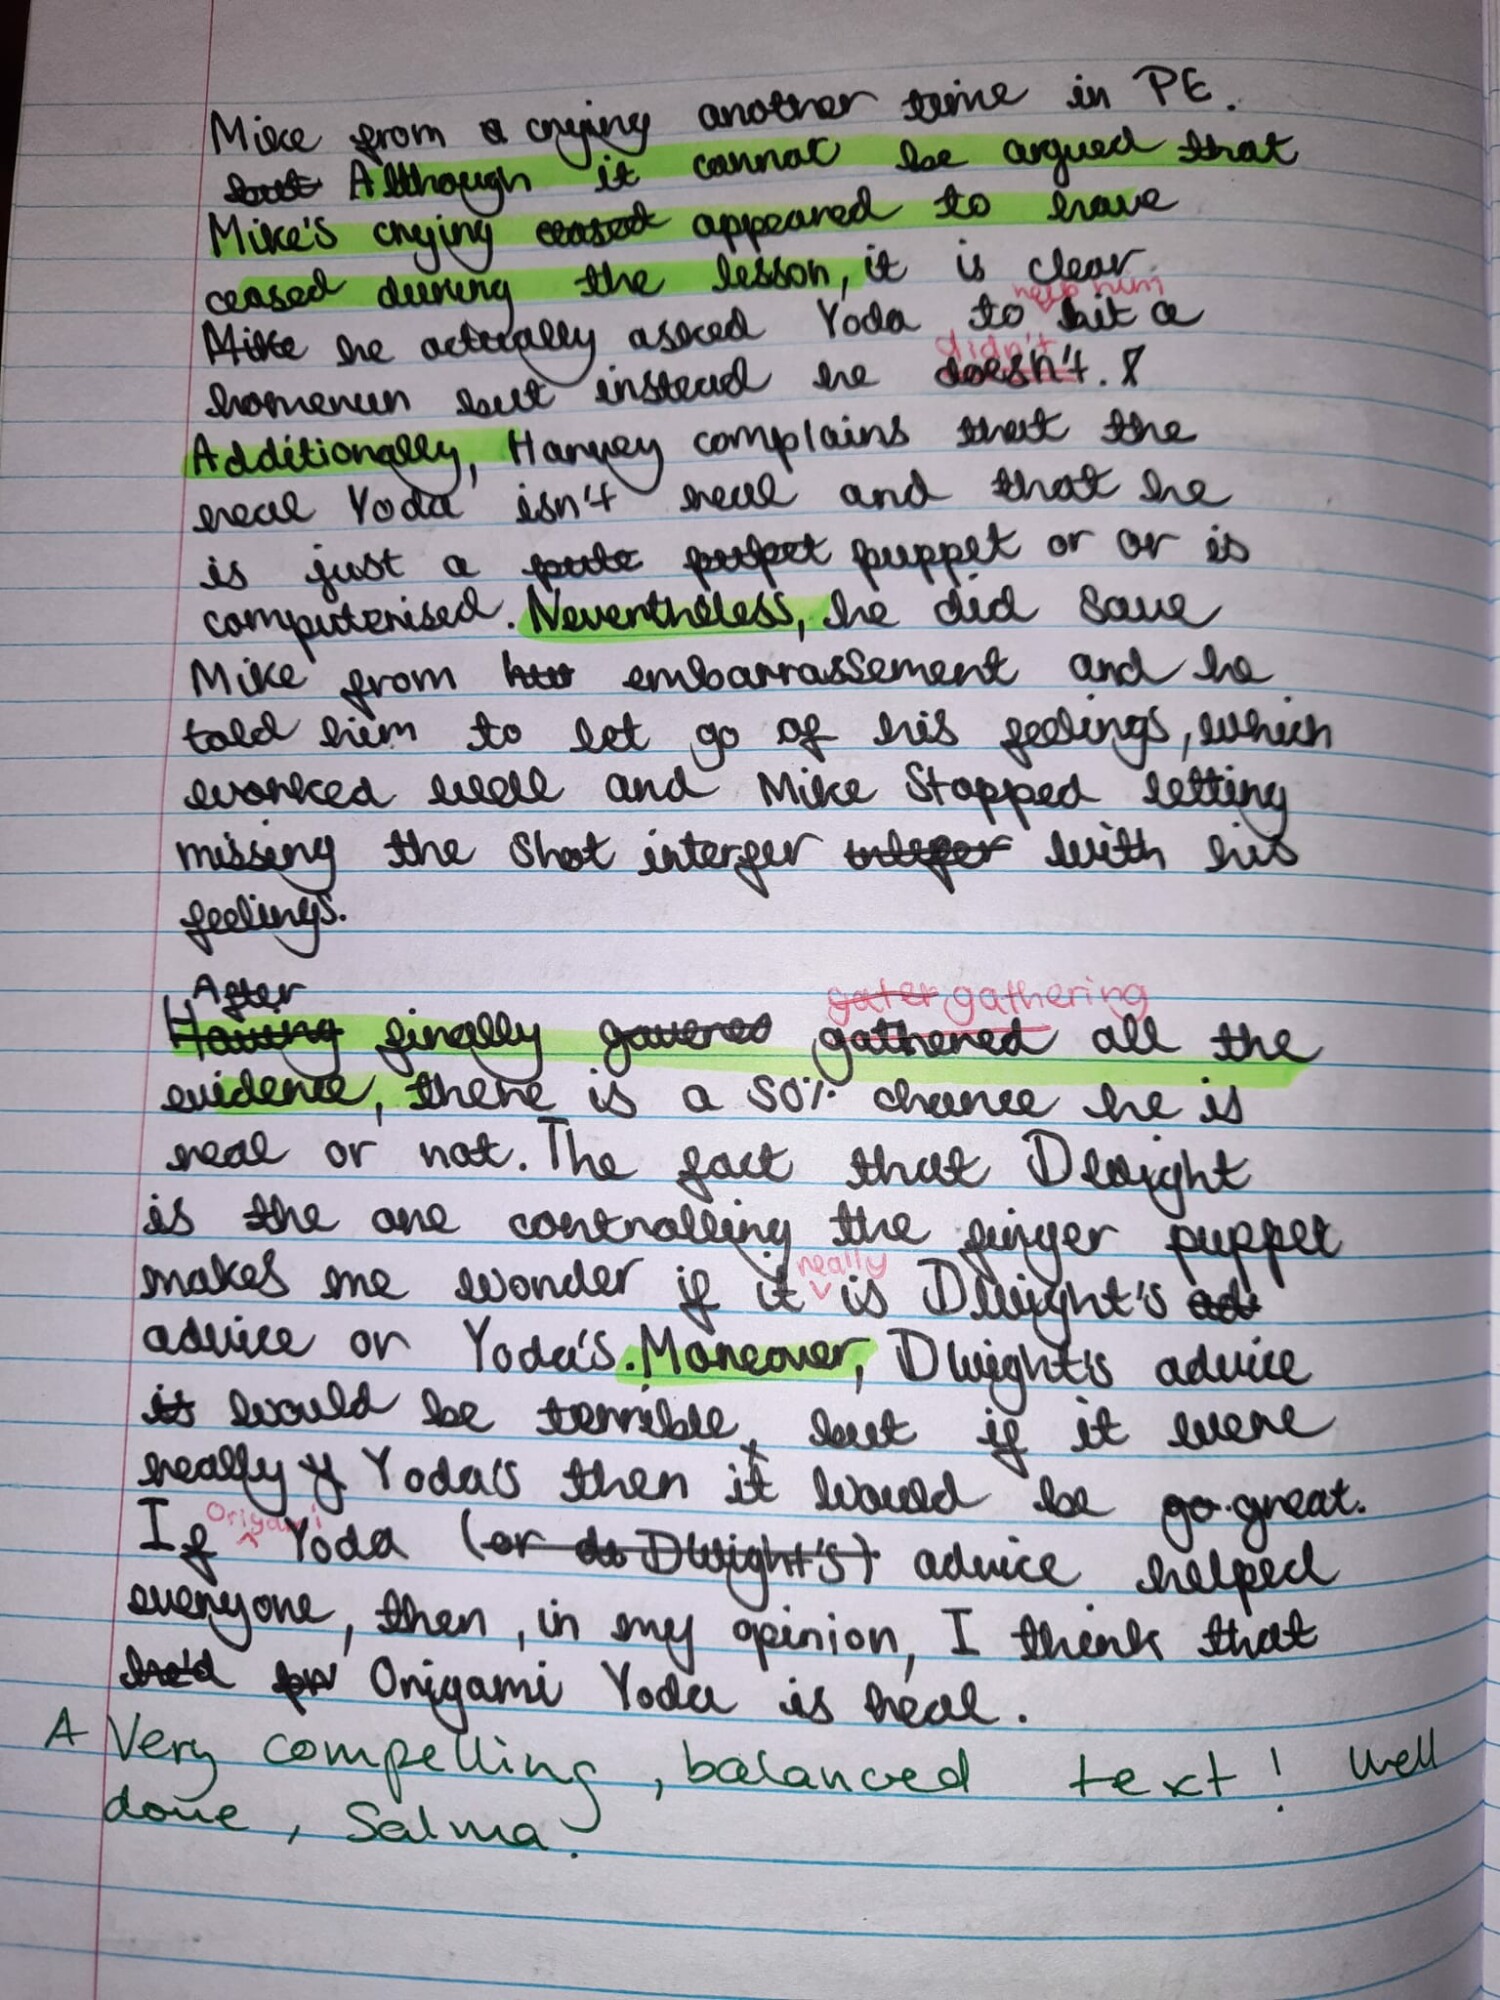 Mike from a crying another time in PE.
but Although it cannot be argued that
Mike's crying ceased appeared to have
ceased during the lesson, it is clear
help him
Mike he actually asked Yoda to hit a
didn't
homerun but instead he doesn't. &
Additionally, Harvey complains that the
real Yoda isn't real and that he
is just a pute pufpet puppet or or is
computerised. Nevertheless, he did save
Mike from hur embarrassement and he
told him to let go of his feelings, which
worked well and Mike stopped letting
missing the shot interfer interfer with his
feelings.
After
gater gathering
Having finally gavered gathered all the
evidence, there is a 50% chance he is
real or not. The fact that Dwight
is the one controlling the finger puppet
really
makes me wonder if it is Dwight's ad
advice or Yoda's. Moreover, Dwight's advice
is would be terrible, but if it were
really y Yoda's then it would be go great.
Origami
If Yoda (or do Dwight's) advice helped
everyone, then, in my opinion, I think that
he'd Origami Yoda is real.
A Very compelling, balanced text! Well
done, Salma.